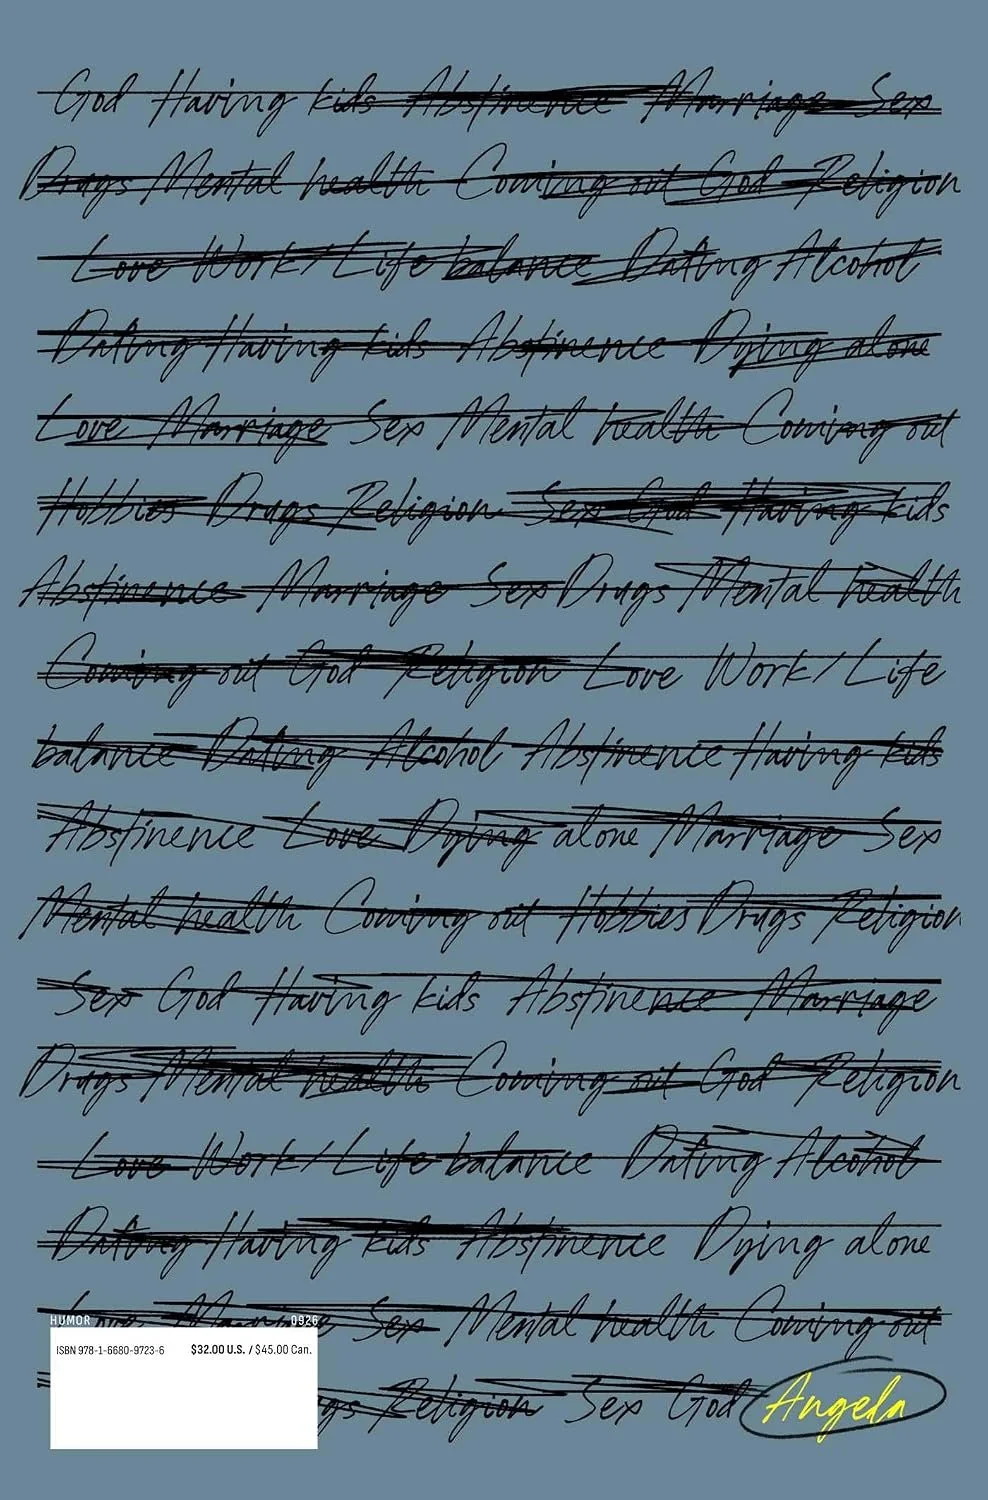 God Having kids Abstinence Marriage Sex
Drugs Mental health Coming out God Religion
Love Work/Life balance Dating Alcohol
Dating Having kids Abstinence Dying alone
Love Marriage Sex Mental health Coming out
Hobbies Drugs Religion Sex God Having kids
Abstinence Marriage Sex Drugs Mental health
Coming out God Religion Love Work/Life
balance Dating Alcohol Abstinence Having kids
Abstinence Love Dying alone Marriage Sex
Mental health Coming out Hobbies Drugs Religion
Sex God Having kids Abstinence Marriage
Drugs Mental health Coming out God Religion
Love Work/Life balance Dating Alcohol
Dating Having kids Abstinence Dying alone
Love Marriage Sex Mental health Coming out
HUMOR 0926
ISBN 978-1-6680-9723-6 $32.00 U.S. / $45.00 Can.
Religion Sex God Angela